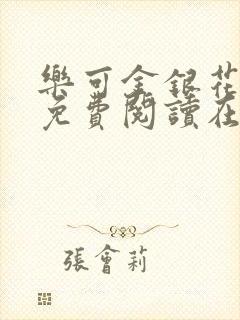 樂可金銀花
免費閱讀在
張會莉